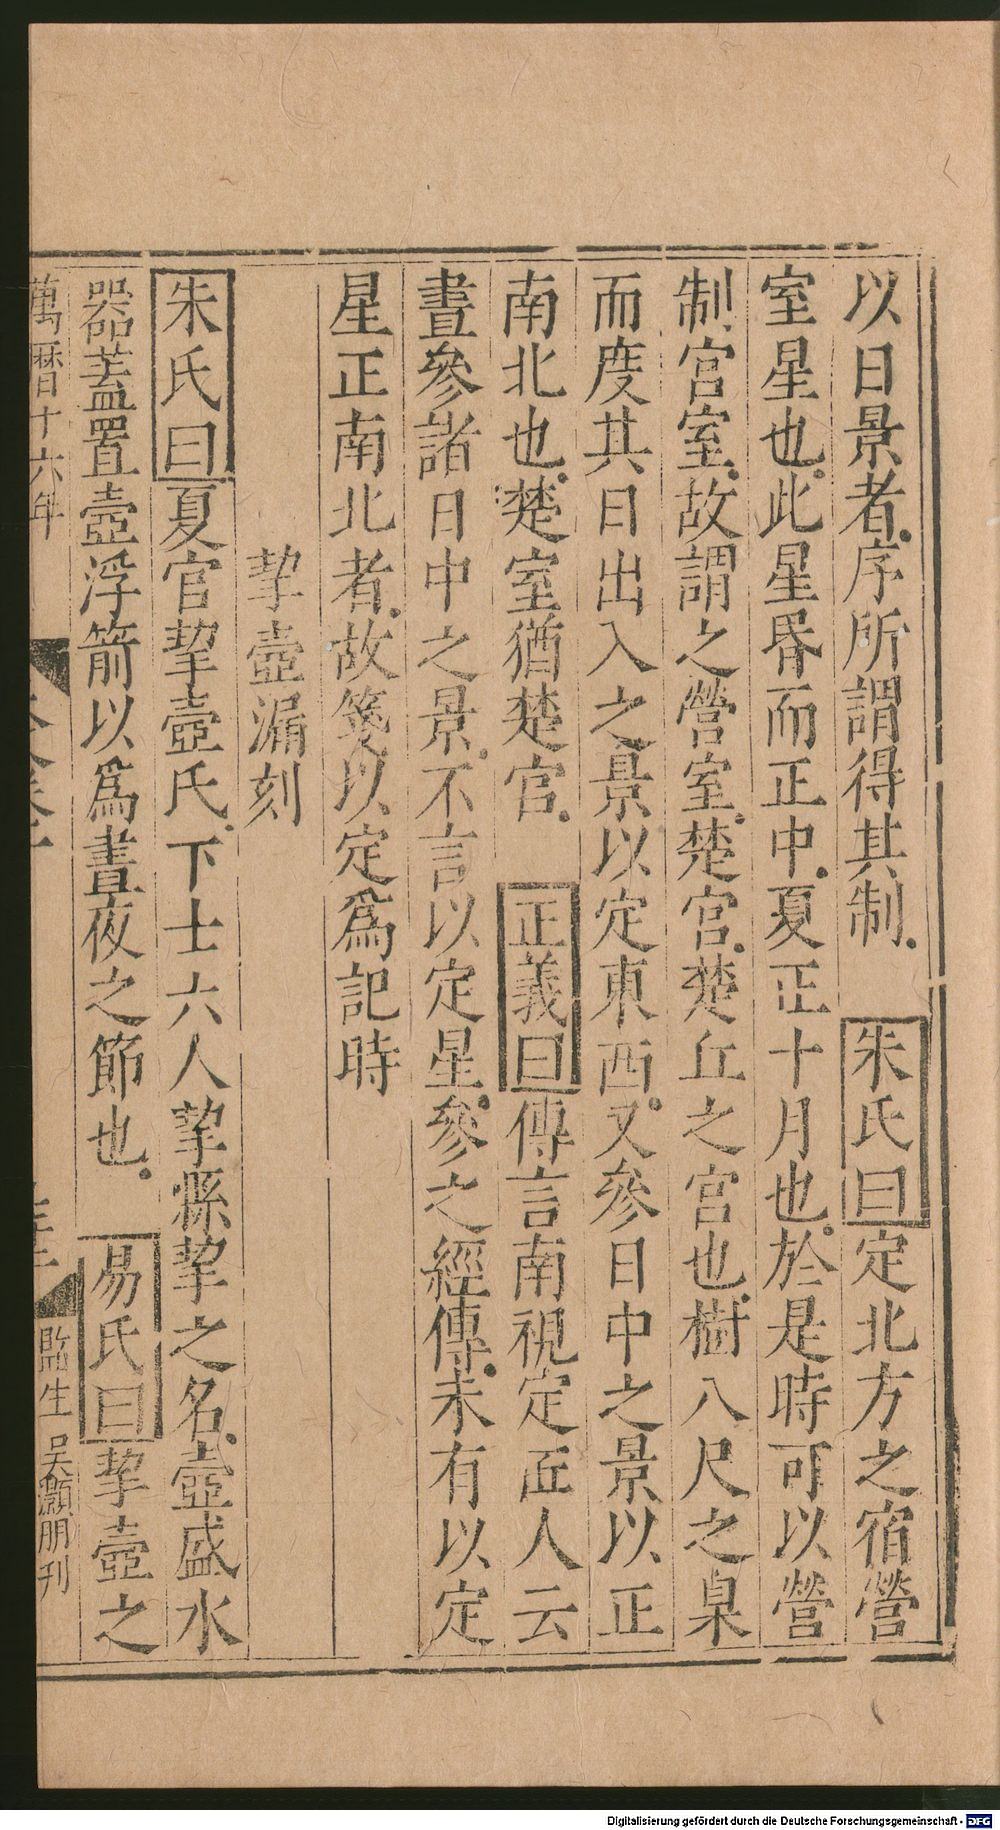 以日景者序所謂得其制 朱氏曰定北方之宿營
室星也此星昏而正中夏正十月也於是時可以營
制宮室故謂之營室楚宮楚丘之宮也樹八尺之臬
而度其日出入之景以定東西又參日中之景以正
南北也楚室猶楚宮 正義曰傳言南視定匠人云
晝參諸日中之景不言以定星參之經傳未有以定
星正南北者故箋以定為記時
挈壺漏刻
朱氏曰夏官挈壺氏下士六人挈縣挈之名壺盛水
器蓋置壺浮箭以為晝夜之節也 易氏曰挈壺之
萬曆十六年
監生吳灝朋刊
Digitalisierung gefördert durch die Deutsche Forschungsgemeinschaft - DFG